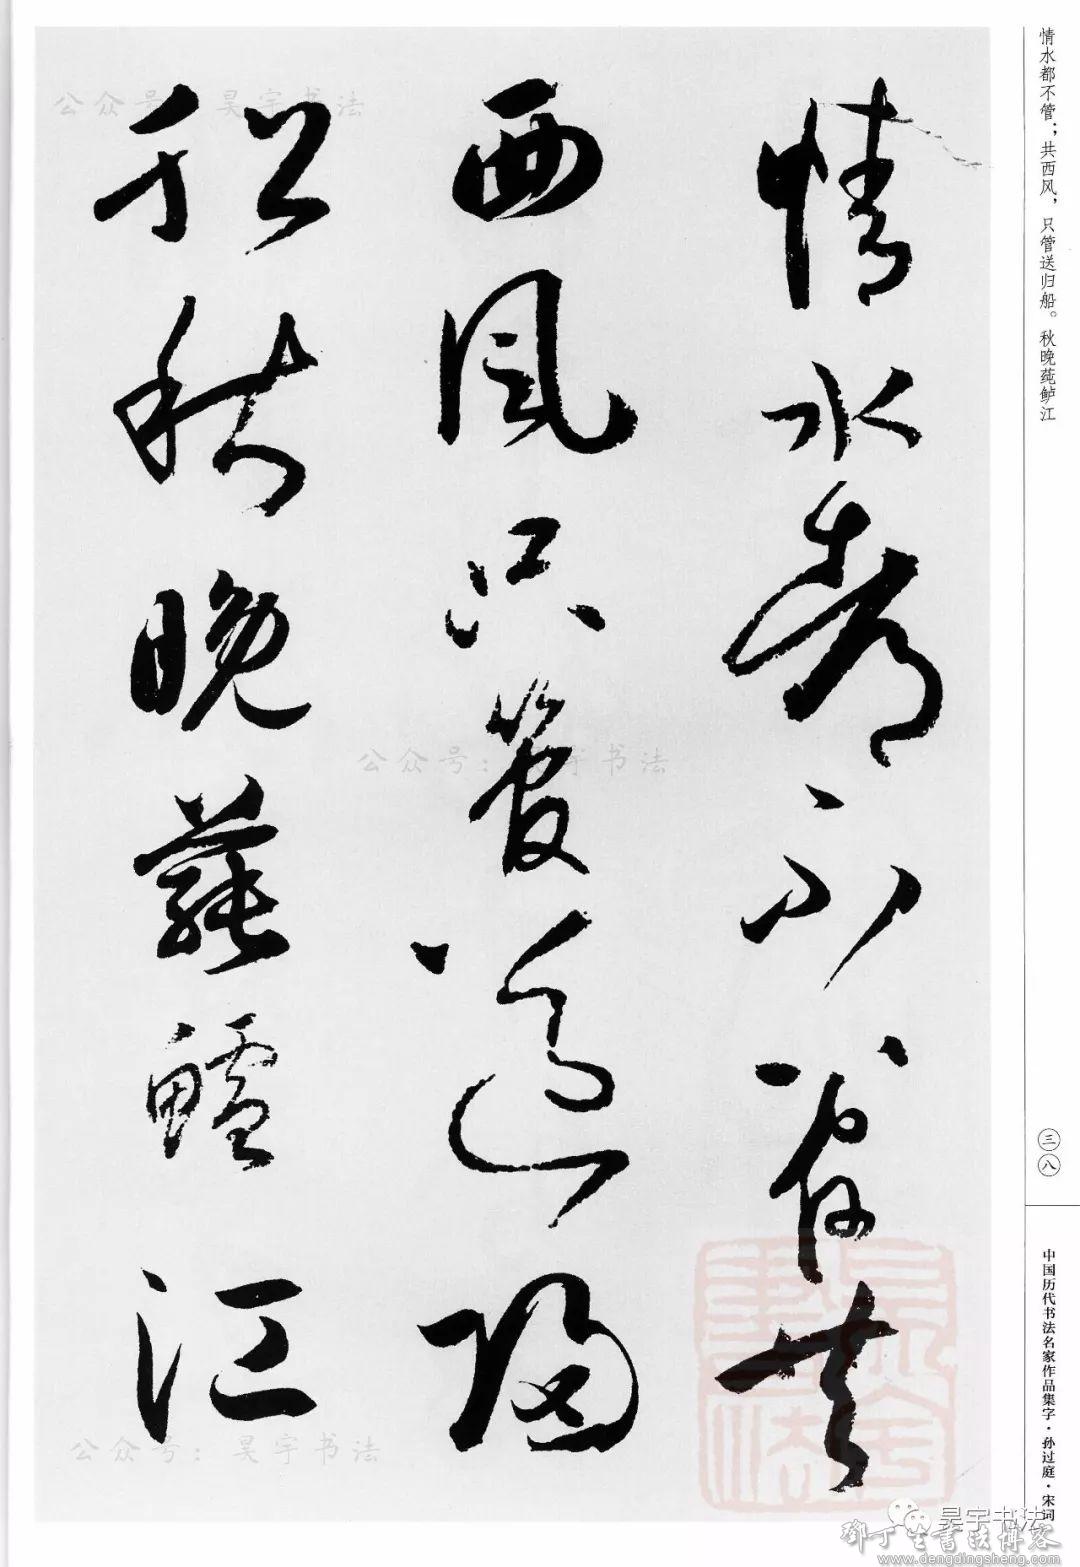 情水都不管共
西风只管送归
船秋晚莼鲈江
情水都不管；共西风，只管送归船。秋晚莼鲈江
三八
中国历代书法名家作品集字·孙过庭·宋词
公众号：昊宇书法
公众号：昊宇书法
公众号：昊宇书法
昊宇书法
邓丁生书法博客
www.dengdingsheng.com